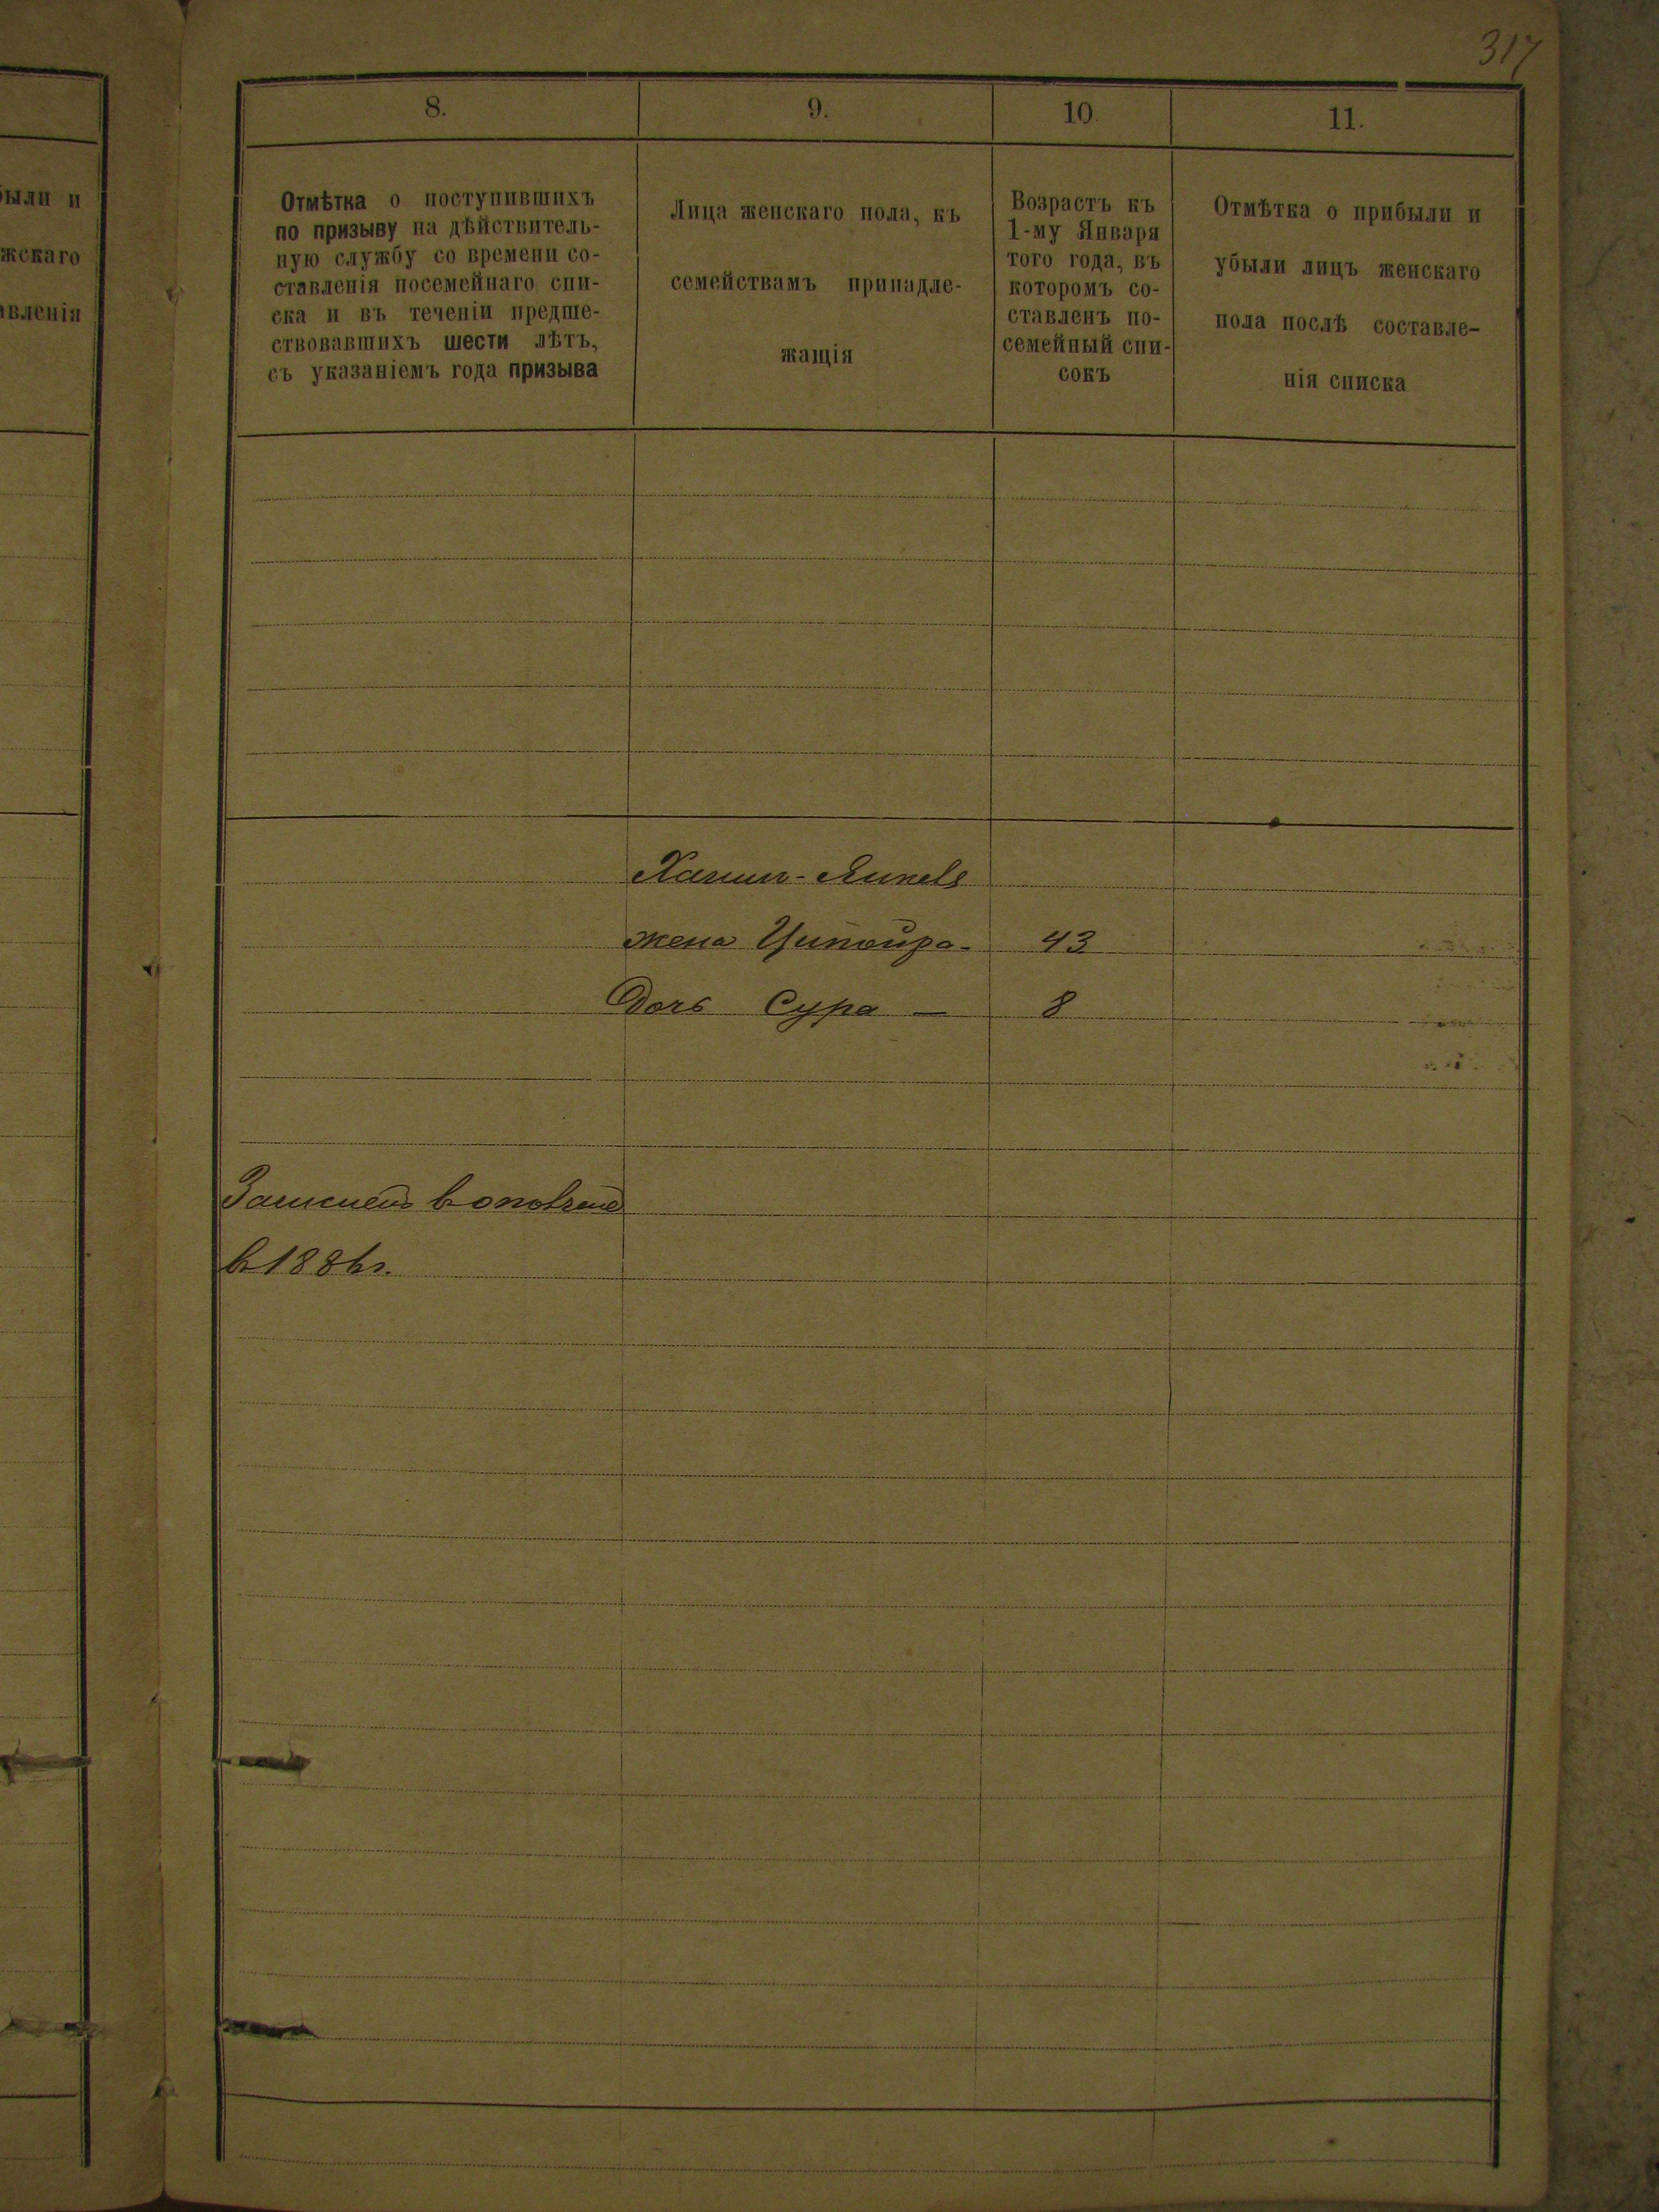 317
были и
жскаго
авленія
8.
9.
10.
11.
Отмѣтка о поступившихъ
по призыву на дѣйствитель-
ную службу со времени со-
ставленія посемейнаго спи-
ска и въ теченіи предше-
ствовавшихъ шести лѣтъ,
съ указаніемъ года призыва
Лица женскаго пола, къ
семействамъ принадле-
жащія
Возрастъ къ
1-му Января
того года, въ
которомъ со-
ставленъ по-
семейный спи-
сокъ
Отмѣтка о прибыли и
убыли лицъ женскаго
пола послѣ составле-
нія списка
жена Ципойра 43
Дочь Сура — 8
в 1886 г.